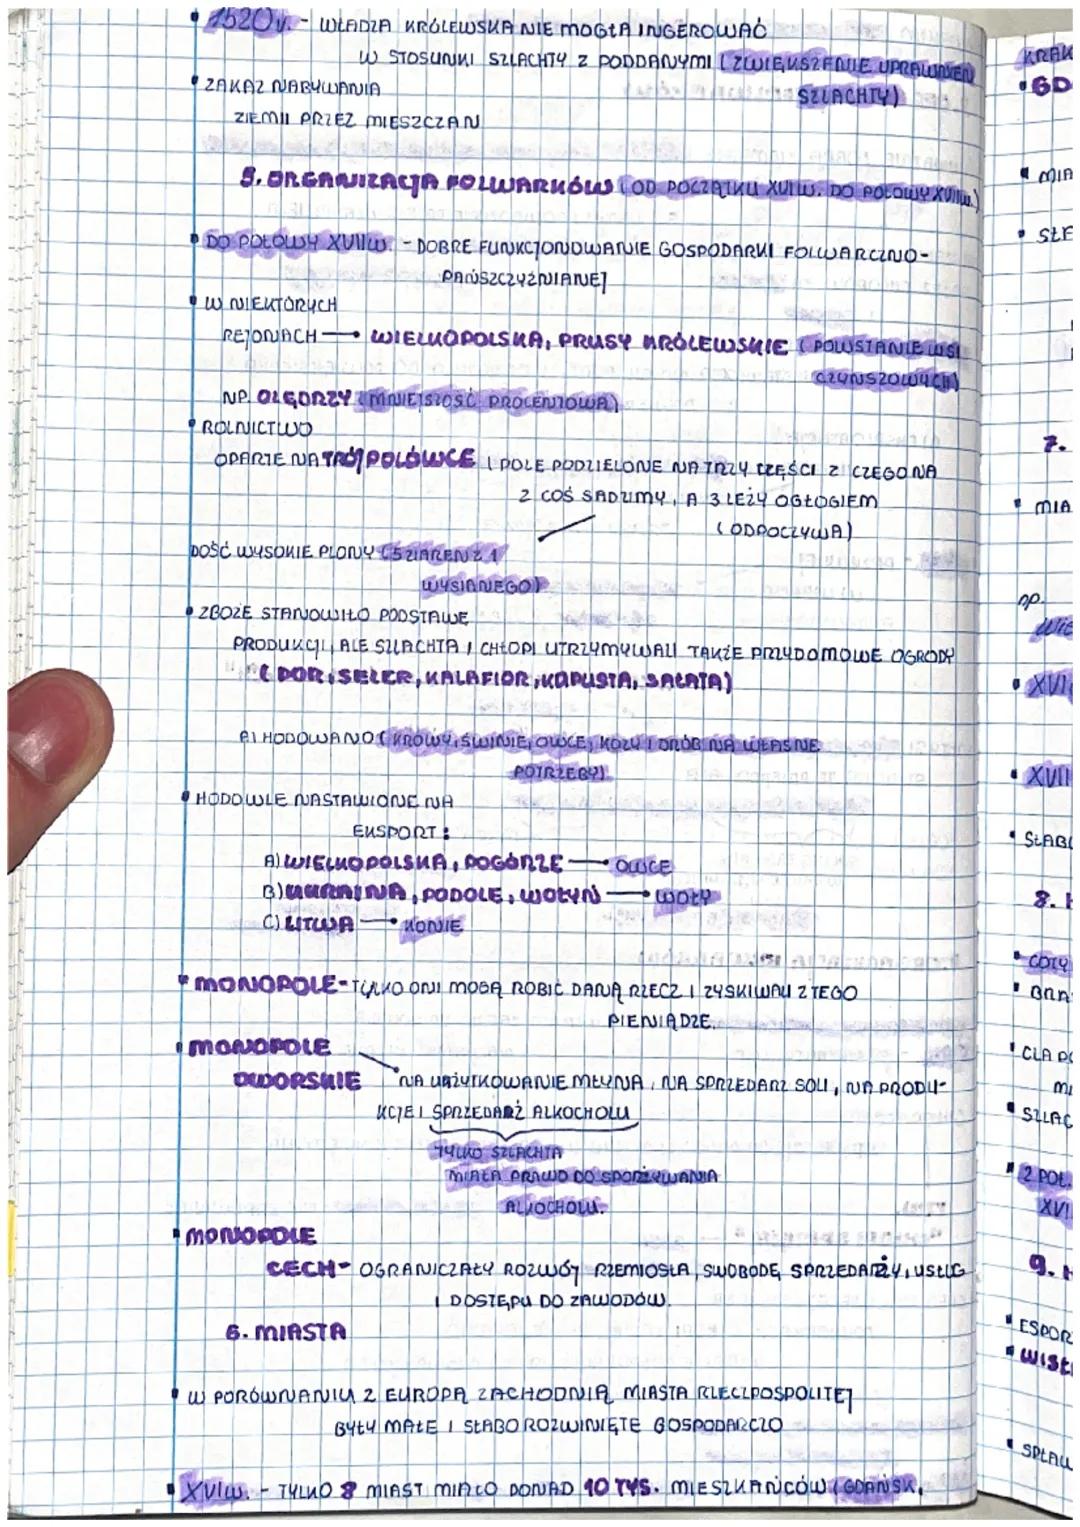 1520r. - WŁADZA KRÓLEWSKA NIE MOGŁA INGEROWAĆ
W STOSUNKI SZLACHTY Z PODDANYMI (ZWIĘKSZENIE UPRAWNIEŃ
SZLACHTY)
ZAKAZ NABYWANIA
ZIEMII PRZEZ MIESZCZAN
5. ORGANIZACJA FOLWARKÓW (OD POCZĄTKU XVI W. DO POŁOWY XVII w.)
DO POŁOWY XVII w. - DOBRE FUNKCJONOWANIE GOSPODARKI FOLWARCZNO-
PAŃSZCZYŹNIANEJ
W NIEKTÓRYCH
REJONACH → WIELKOPOLSKA, PRUSY KRÓLEWSKIE (POWSTANIE WSI
CZYNSZOWYCH)
NP. OLĘDRZY (MNIEJSZOŚĆ PROCENTOWA)
ROLNICTWO
OPARTE NA TRÓJPOLÓWCE (POLE PODZIELONE NA TRZY CZĘŚCI Z CZEGO NA
2 COŚ SADZIMY, A 3 LEŻY OGŁOGIEM
(ODPOCZYWA)
DOŚĆ WYSOKIE PLONY (5 ZIAREN Z 1
WYSIANEGO)
ZBOŻE STANOWIŁO PODSTAWĘ
PRODUKCJI, ALE SZLACHTA I CHŁOPI UTRZYMYWALI TAKŻE PRZYDOMOWE OGRODY
(POR, SELER, KALAFIOR, KAPUSTA, SAŁATA)
A) HODOWANO (KROWY, ŚWINIE, OWCE, KOZY I DRÓB NA WŁASNE
POTRZEBY)
HODOWLE NASTAWIONE NA
EKSPORT:
A) WIELKOPOLSKA, POGÓRZE → OWCE
B) UKRAINA, PODOLE, WOŁYŃ → WOŁY
C) LITWA → KONIE
MONOPOLE - TYLKO ONI MOGĄ ROBIĆ DANĄ RZECZ I ZYSKIWALI Z TEGO
PIENIĄDZE.
MONOPOLE
DWORSKIE NA UŻYTKOWANIE MŁYNA, NA SPRZEDAŻ SOLI, NA PRODU-
KCJE I SPRZEDAŻ ALKOCHOLU
TYLKO SZLACHTA
MIAŁA PRAWO DO SPOŻYWANIA
ALKOCHOLU.
MONOPOLE
CECH - OGRANICZAŁY ROZWÓJ RZEMIOSŁA, SWOBODĘ SPRZEDAŻY, USŁUG
I DOSTĘPU DO ZAWODÓW.
6. MIASTA
W PORÓWNANIU Z EUROPĄ ZACHODNIĄ MIASTA RZECZPOSPOLITEJ
BYŁY MAŁE I SŁABO ROZWINIĘTE GOSPODARCZO
XVI w. - TYLKO 8 MIAST MIAŁO PONAD 10 TYS. MIESZKAŃCÓW (GDAŃSK,
KRAK
GD
MIA
STE
7.
MIA
np.
WIE
XVI
XVII
SŁAB
8.
GOTY
BRA
CLA
SZLAC
2 POŁ.
XVI
9.
ESPOR
WISŁ
SPŁAW